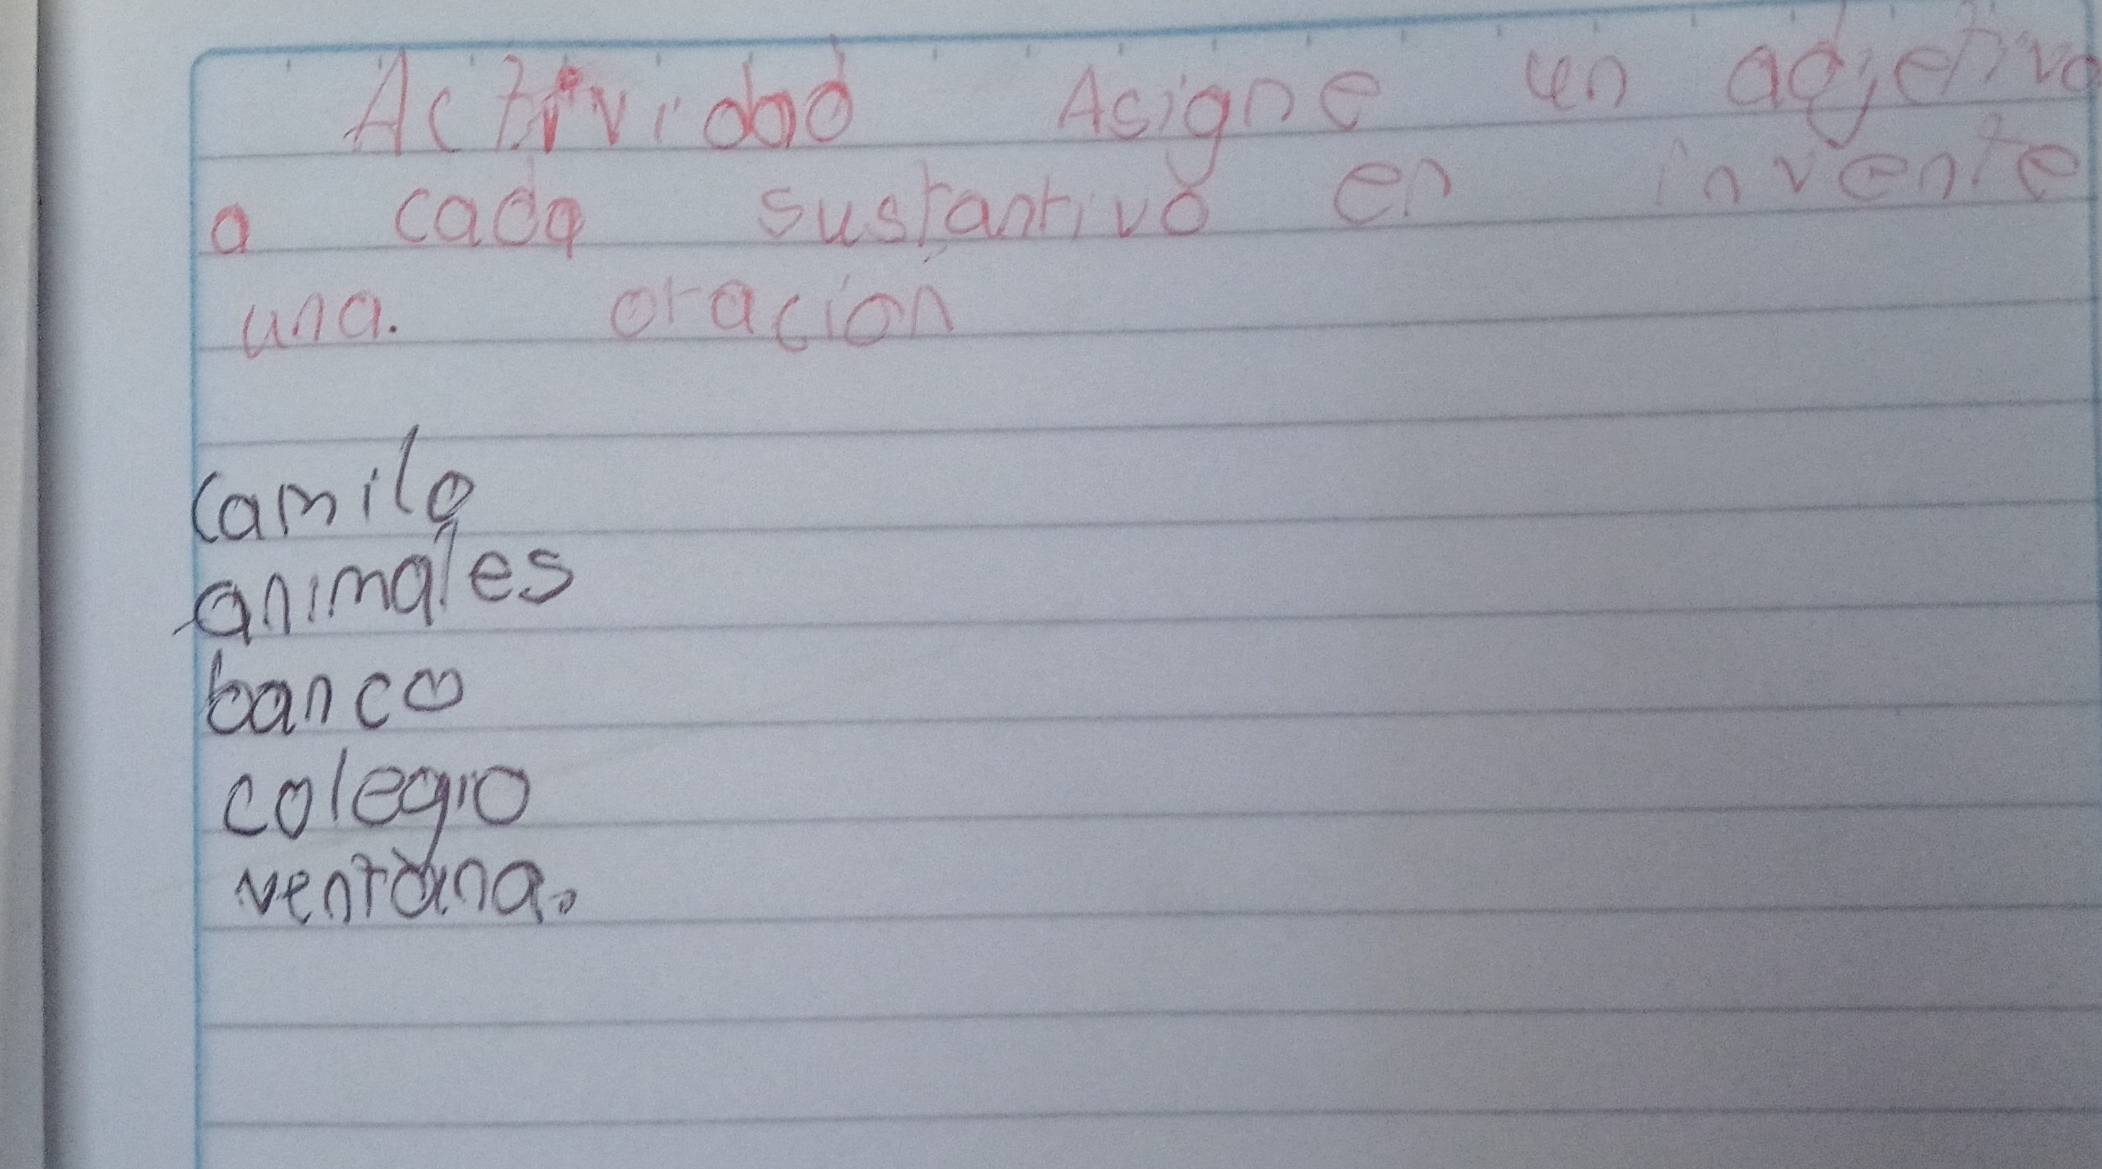 Actividad Asigne un adjetivo
a cada sustantivo en invente
una. oracion
Camilo
animales
banco
colegio
ventana.